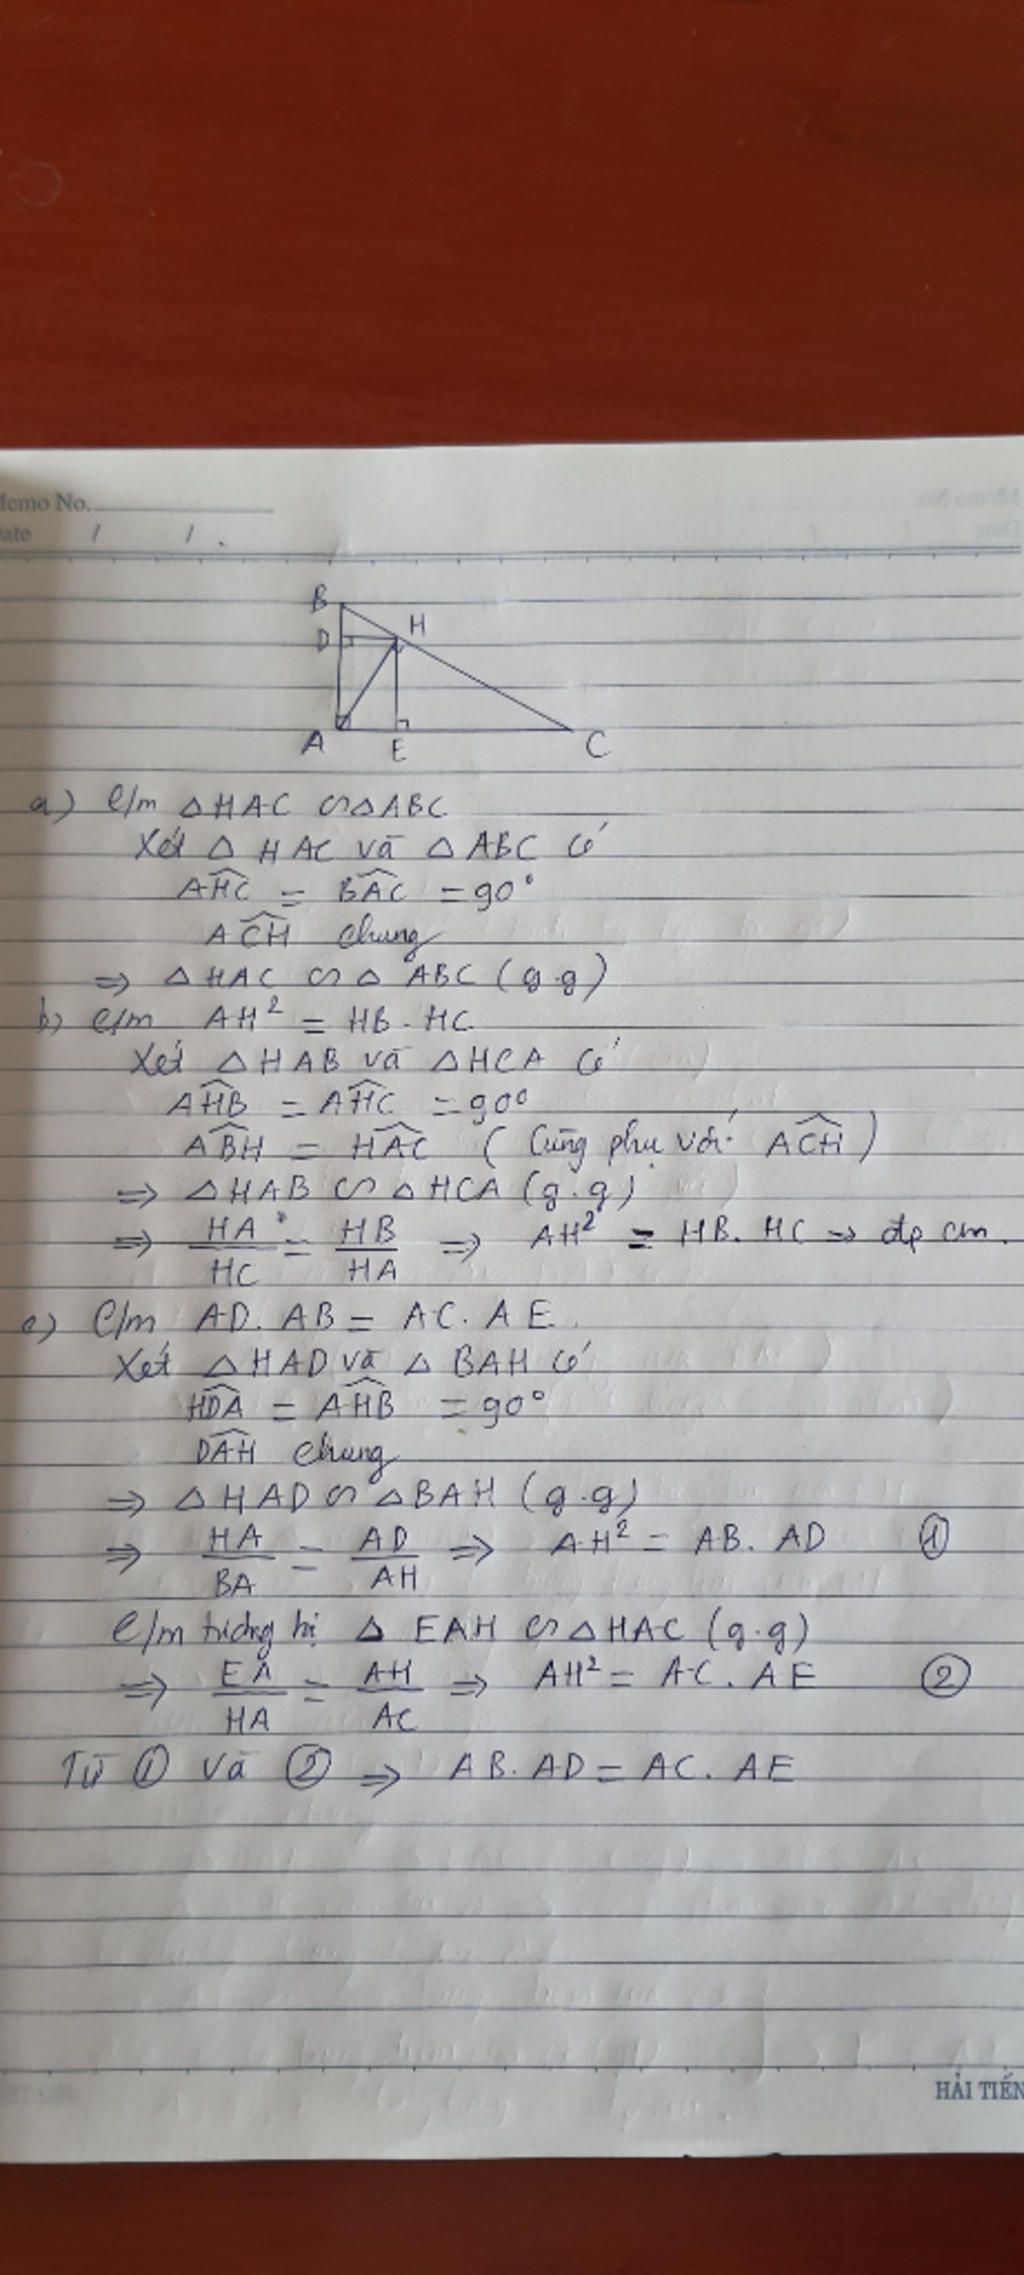 Memo No.
Date / / .
B
H
D
A E C
a) C/m △HAC ∽ △ABC
Xét △ HAC và △ ABC có
AHC = BAC = 90°
ACH chung
=> △ HAC ∽ △ ABC (g.g)
b) C/m AH² = HB . HC
Xét △HAB và △HCA có
AHB = AHC = 90°
ABH = HAC ( Cùng phụ với ACH )
=> △HAB ∽ △HCA (g.g)
=> HA/HC = HB/HA => AH² = HB. HC -> đpcm.
c) C/m AD. AB = AC. AE
Xét △HAD và △ BAH có
HDA = AHB = 90°
DAH chung
=> △HAD ∽ △BAH (g.g)
=> HA/BA = AD/AH => AH² = AB. AD ①
C/m tương tự △ EAH ∽ △HAC (g.g)
=> EA/HA = AH/AC => AH² = AC. AE ②
Từ ① và ② => AB. AD = AC. AE
HẢI TIẾN